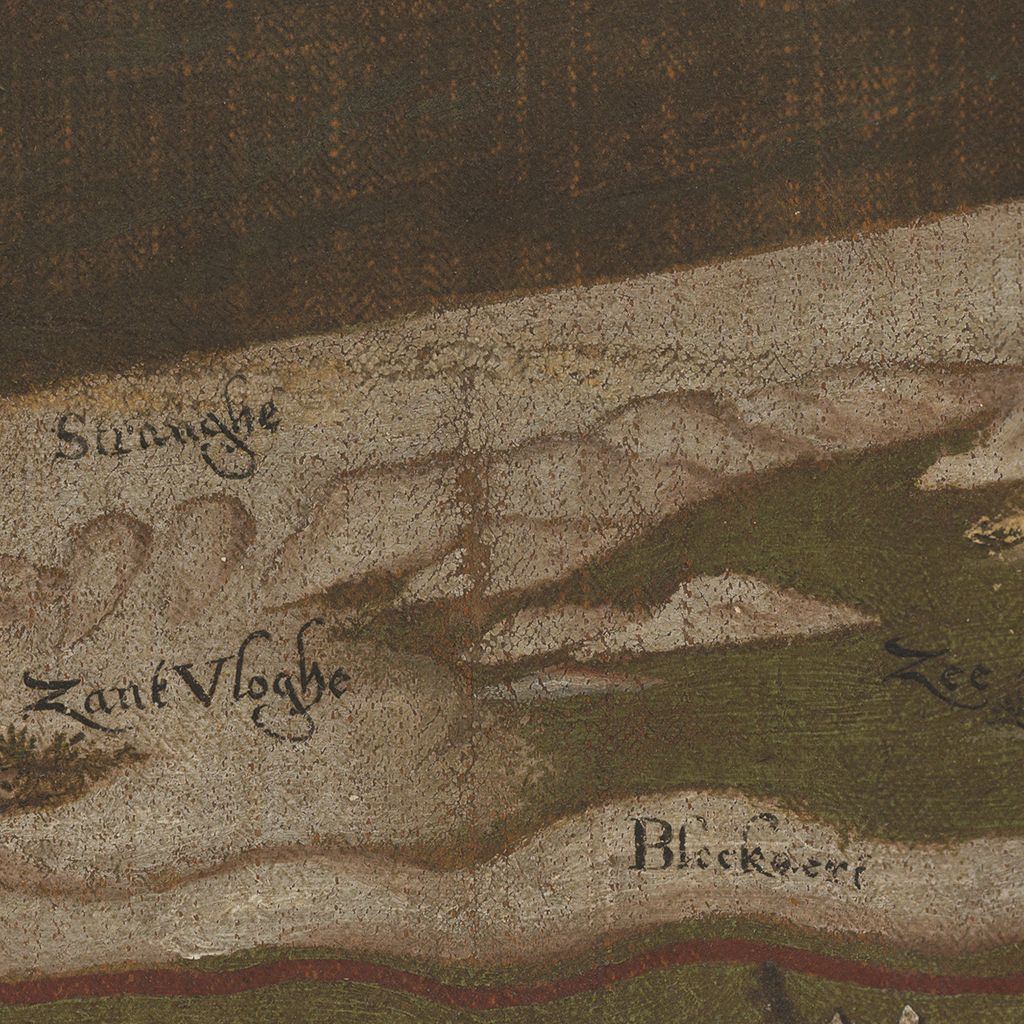 Stranghe
Zant Vloghe
Zee
Bleckaert